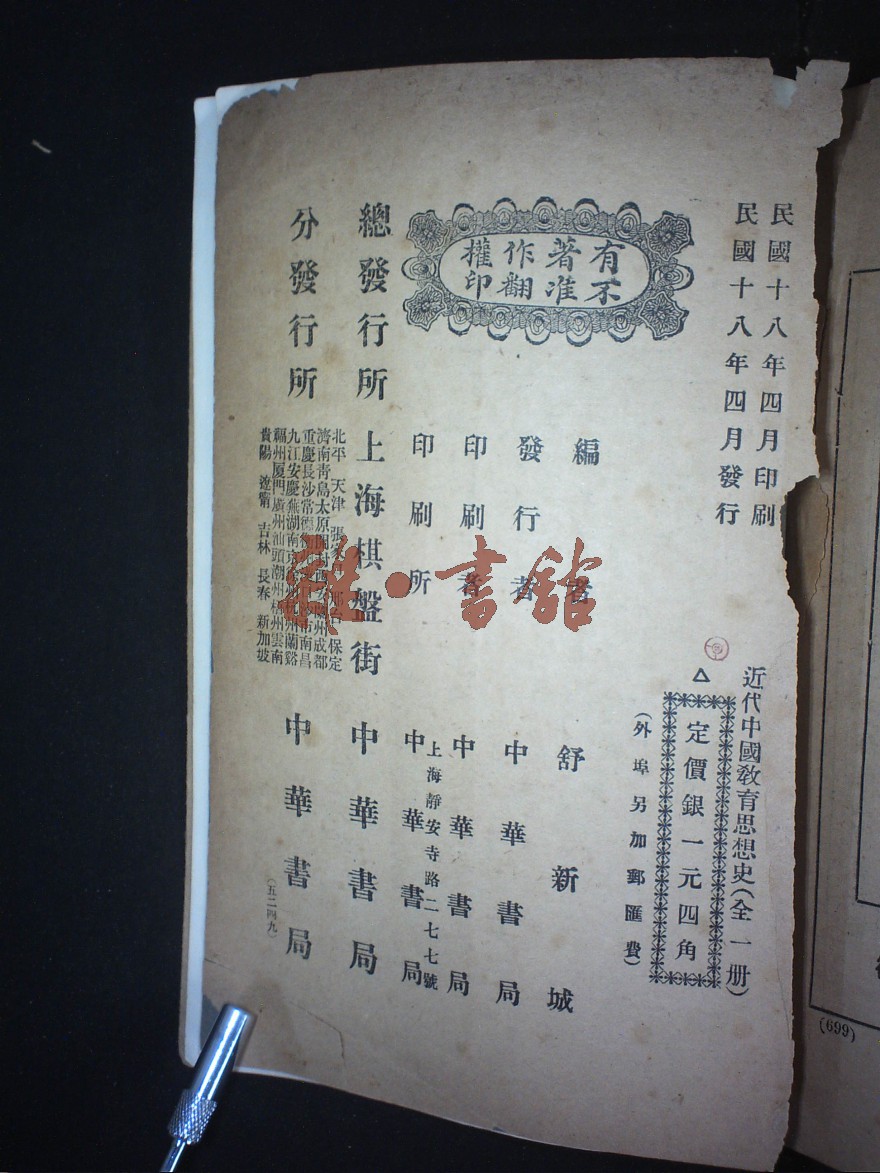 民國十八年四月印刷
民國十八年四月發行
近代中國教育思想史(全一册)
△
定價銀一元四角
(外埠另加郵匯費)
有著作權
不准翻印
編者 舒新城
發行者 中華書局
印刷者 中華書局
印刷所 上海靜安寺路二七七號
中華書局
總發行所 上海棋盤街 中華書局
分發行所
北平 天津 保定
濟南青島太原 成都
重慶長沙常德 南昌
九江安慶蕪湖南京 杭州蘭谿
福州厦門廣州汕頭潮州 雲南
貴陽 遼甯 吉林 長春 新加坡
中華書局
(五二四九)
雜·書館
(699)